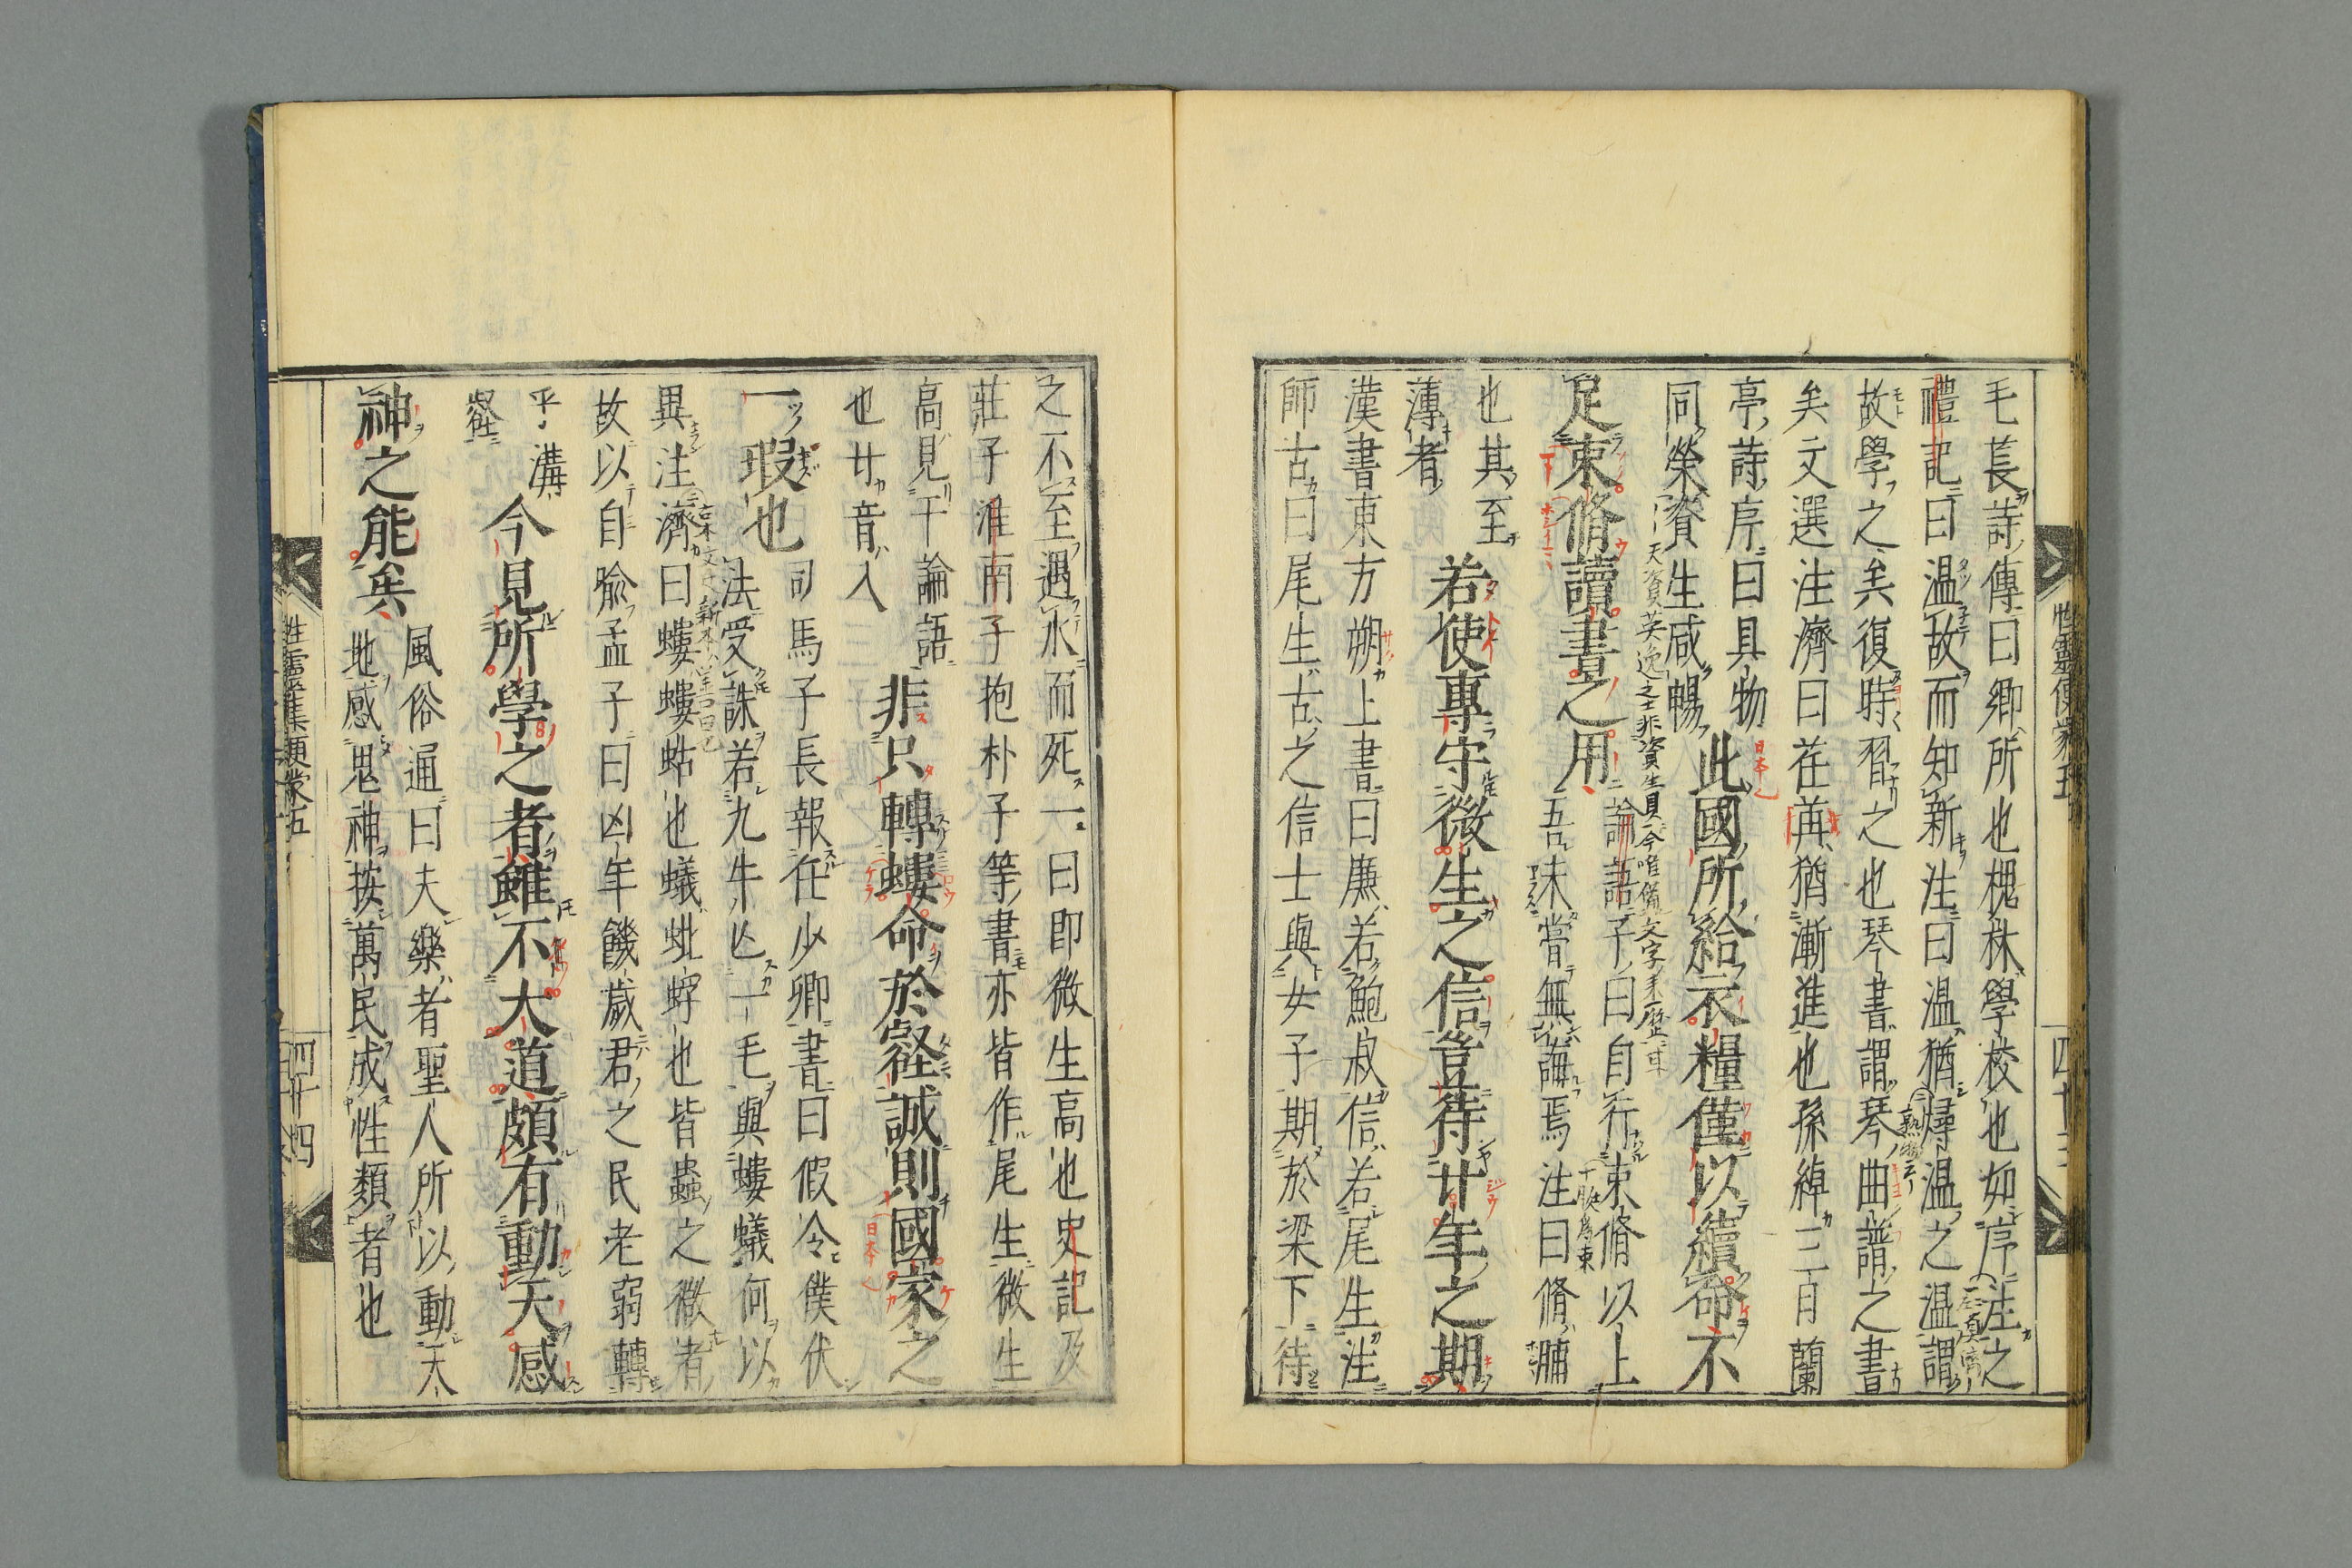 毛萇詩傳曰卿所也槐林學校也如序注之
禮記曰温故而知新注曰温猶燖温之温謂
故學之矣復時習之也琴書謂琴曲譜之書
矣文選注濟曰荏苒猶漸進也孫綽三日蘭
亭詩序曰具物
同榮資生咸暢
此國所給衣糧僅以續命不
足束脩讀書之用
論語子曰自行束脩以上
吾未嘗無誨焉注曰脩脯
也其至
薄者
若使專守微生之信豈待廿年之期
漢書東方朔上書曰廉若鮑叔信若尾生注
師古曰尾生古之信士與女子期於梁下待
性靈集便蒙五
之不至遇水而死一曰即微生高也史記及
莊子淮南子抱朴子等書亦皆作尾生微生
高見于論語
也廿音入
非只轉螻命於壑誠則國家之
一瑕也
司馬子長報任少卿書曰假令僕伏
法受誅若九牛亡一毛與螻蟻何以
異注濟曰螻螻蛄也蟻蚍蜉也皆蟲之微者
故以自喩孟子曰凶年饑歲君之民老弱轉
乎溝
壑
今見所學之者雖不大道頗有動天感
神之能矣
風俗通曰夫樂者聖人所以動天
地感鬼神按萬民成性類者也
性靈集便蒙五
四十四